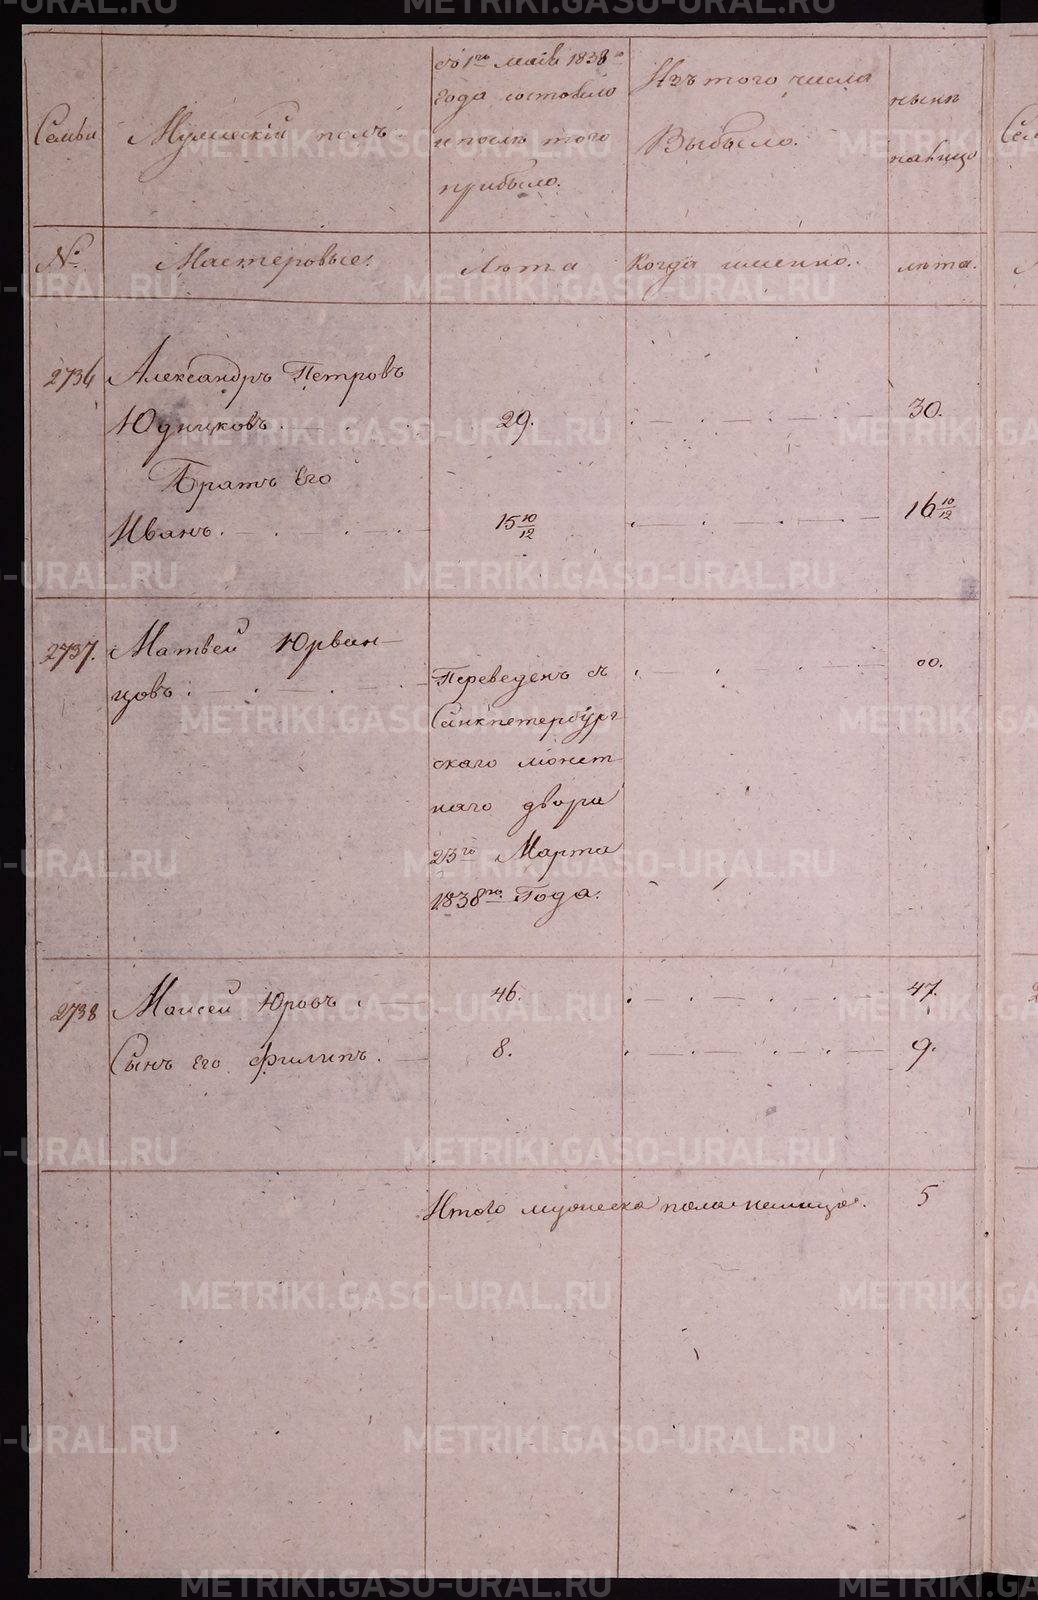 Семьи
Мужескій полъ.
съ 1го маія 1838го
Года состояло
и послѣ того
прибыло.
Изъ того числа
Выбыло.
нынѣ
налицо
№
Мастеровые.
Лѣта
Когда именно.
лѣта.
2736 Александръ Петровъ
Юдниковъ. 29. 30.
Братъ Его
Иванъ. 15 10/12 16 10/12
2737. Матвей Юрван-
цовъ. Переведенъ съ 00.
Санктпетербург
скаго монет-
наго двора
23го Марта
1838го Года.
2738 Моисей Юровъ. 46. 47.
Сынъ его Филипъ. 8. 9.
Итого мужеска пола налицо. 5
METRIKI.GASO-URAL.RU